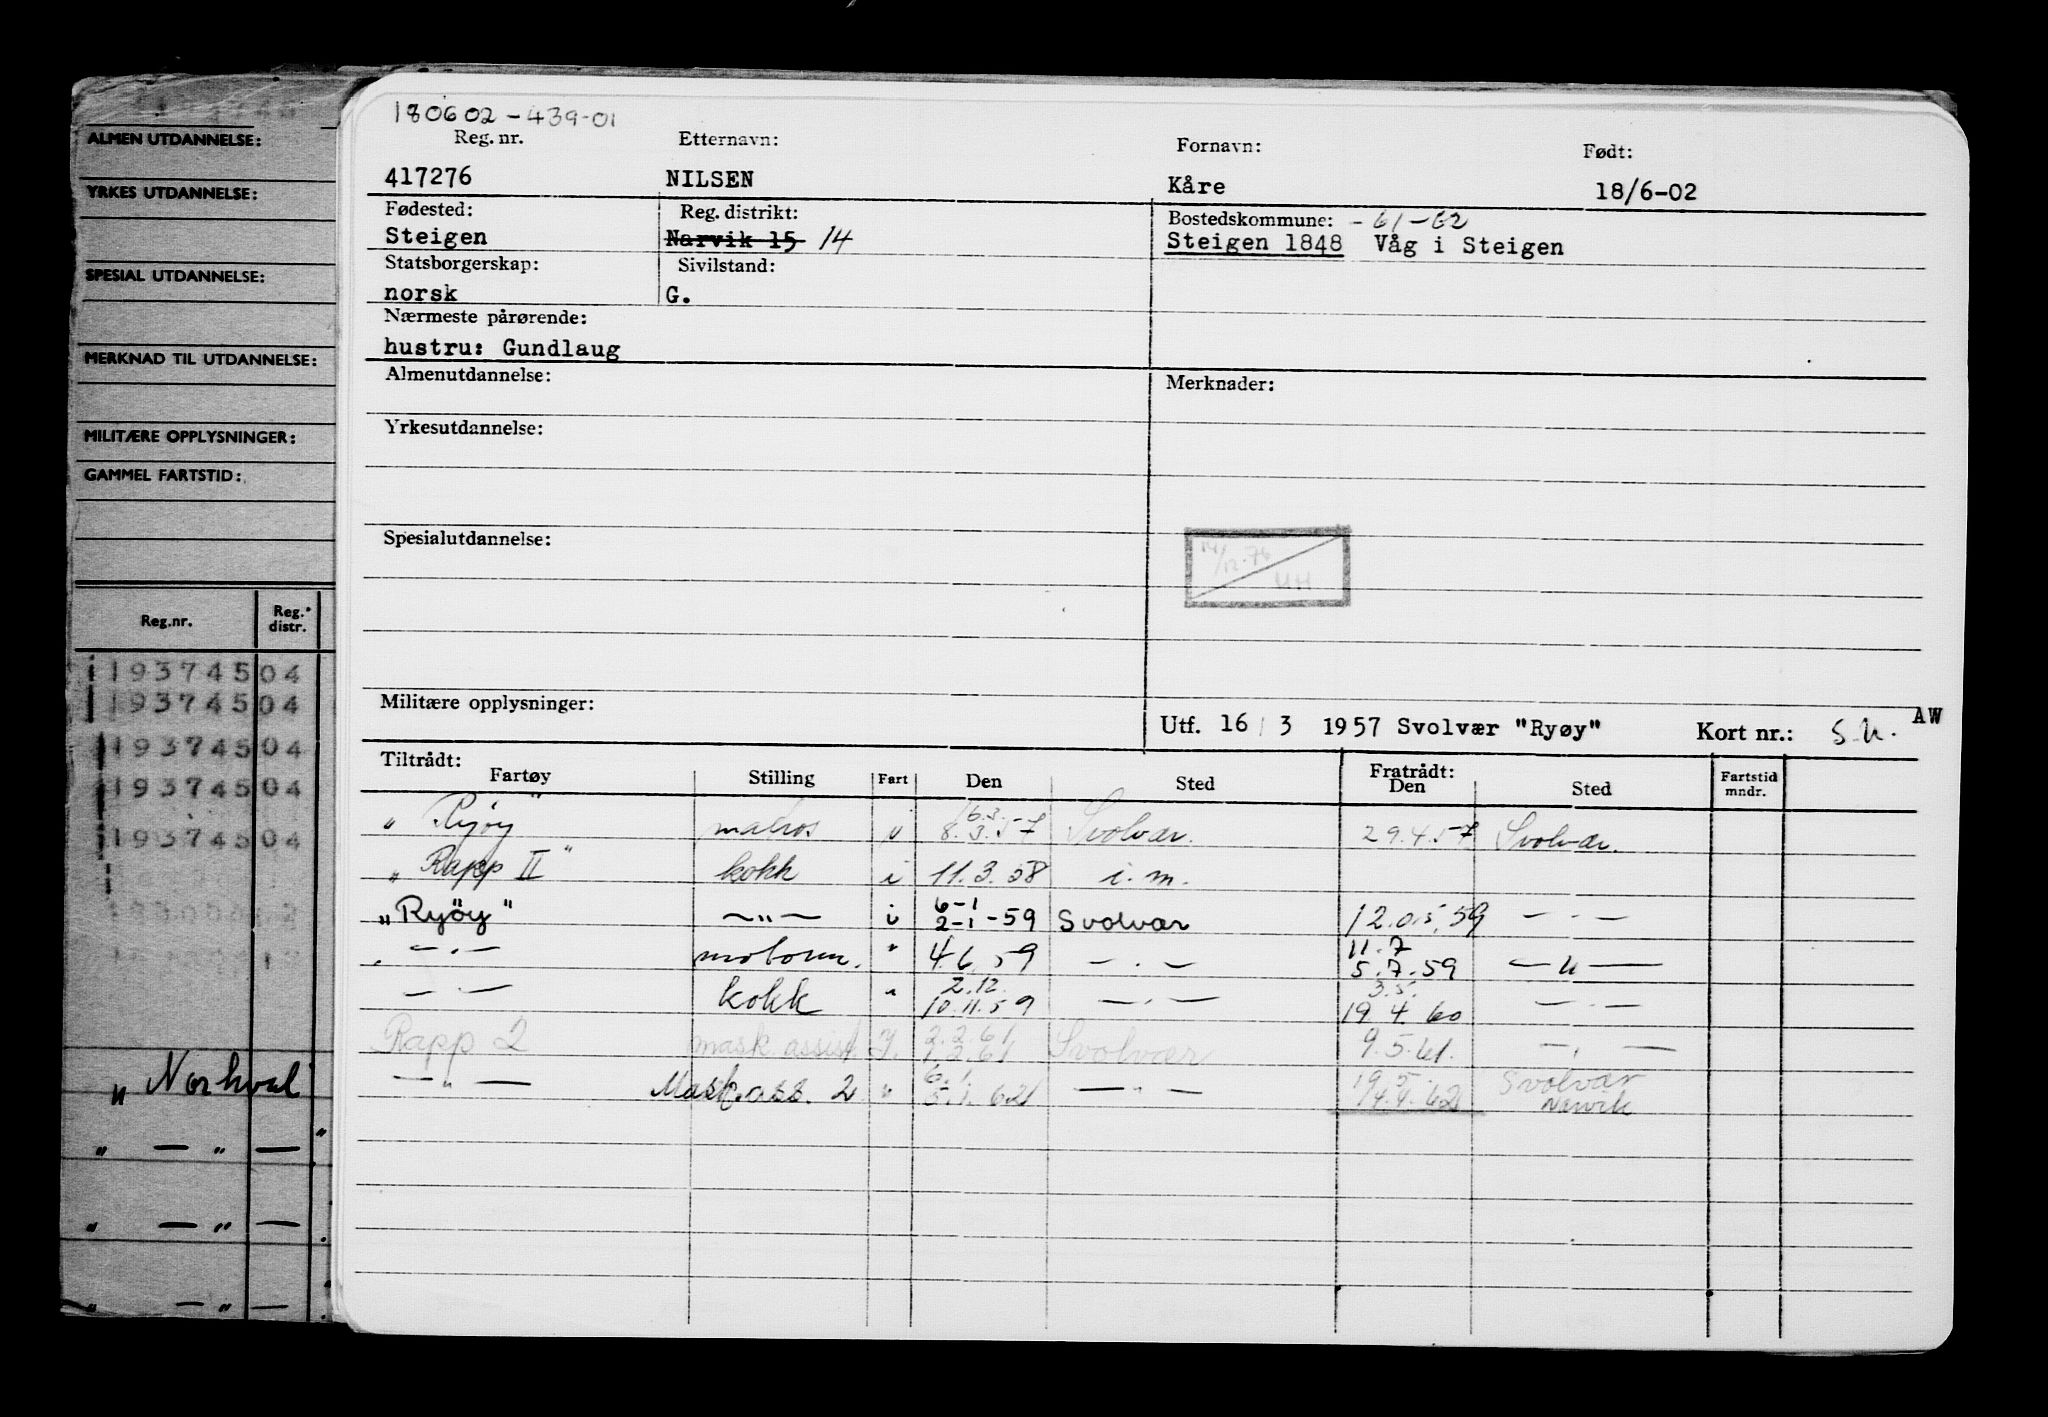 ALMEN UTDANNELSE:
YRKES UTDANNELSE:
SPESIAL UTDANNELSE:
MERKNAD TIL UTDANNELSE:
MILITÆRE OPPLYSNINGER:
GAMMEL FARTSTID:
Reg.nr. Reg. distr.
19374504
19374504
19374504
19374504
19374504
„ Norhval
„ — „ —
„ — „ —
„ — „ —
180602-439-01
Reg. nr. Etternavn: Fornavn: Født:
417276 NILSEN Kåre 18/6-02
Fødested: Reg. distrikt: Bostedskommune: - 61-62
Steigen Narvik 15 14 Steigen 1848 Våg i Steigen
Statsborgerskap: Sivilstand:
norsk G.
Nærmeste pårørende:
hustru: Gundlaug
Almenutdannelse: Merknader:
Yrkesutdannelse:
Spesialutdannelse:
14/12-76
HH
Militære opplysninger:
Utf. 16 / 3 1957 Svolvær "Ryøy" Kort nr.: AW
Tiltrådt: Fratrådt:
Fartøy Stilling Fart Den Sted Den Sted Fartstid mndr.
16.3.
„ Ryøy" matros 8.3.57 Svolvær. 29.4.57 Svolvær.
„ Rapp II" kokk i 11.3.58 i.m.
6-1
„Ryöy" — „ — i 2-1-59 Svolvær 12.05.59 — . —
11.7
— . — motorm. " 4.6.59 — . — 5.7.59 — „ —
2.12. 3.5.
— . — kokk " 10.11.59 — . — 19.4.60 — . —
2.2.61
Rapp 2 mask assist 1.2.61 Svolvær 9.5.61. — . —
6.1. 19.5. Svolvær
— „ — Mask.ass. 2 " 5.1.62 — „ — 14.4.62 Narvik